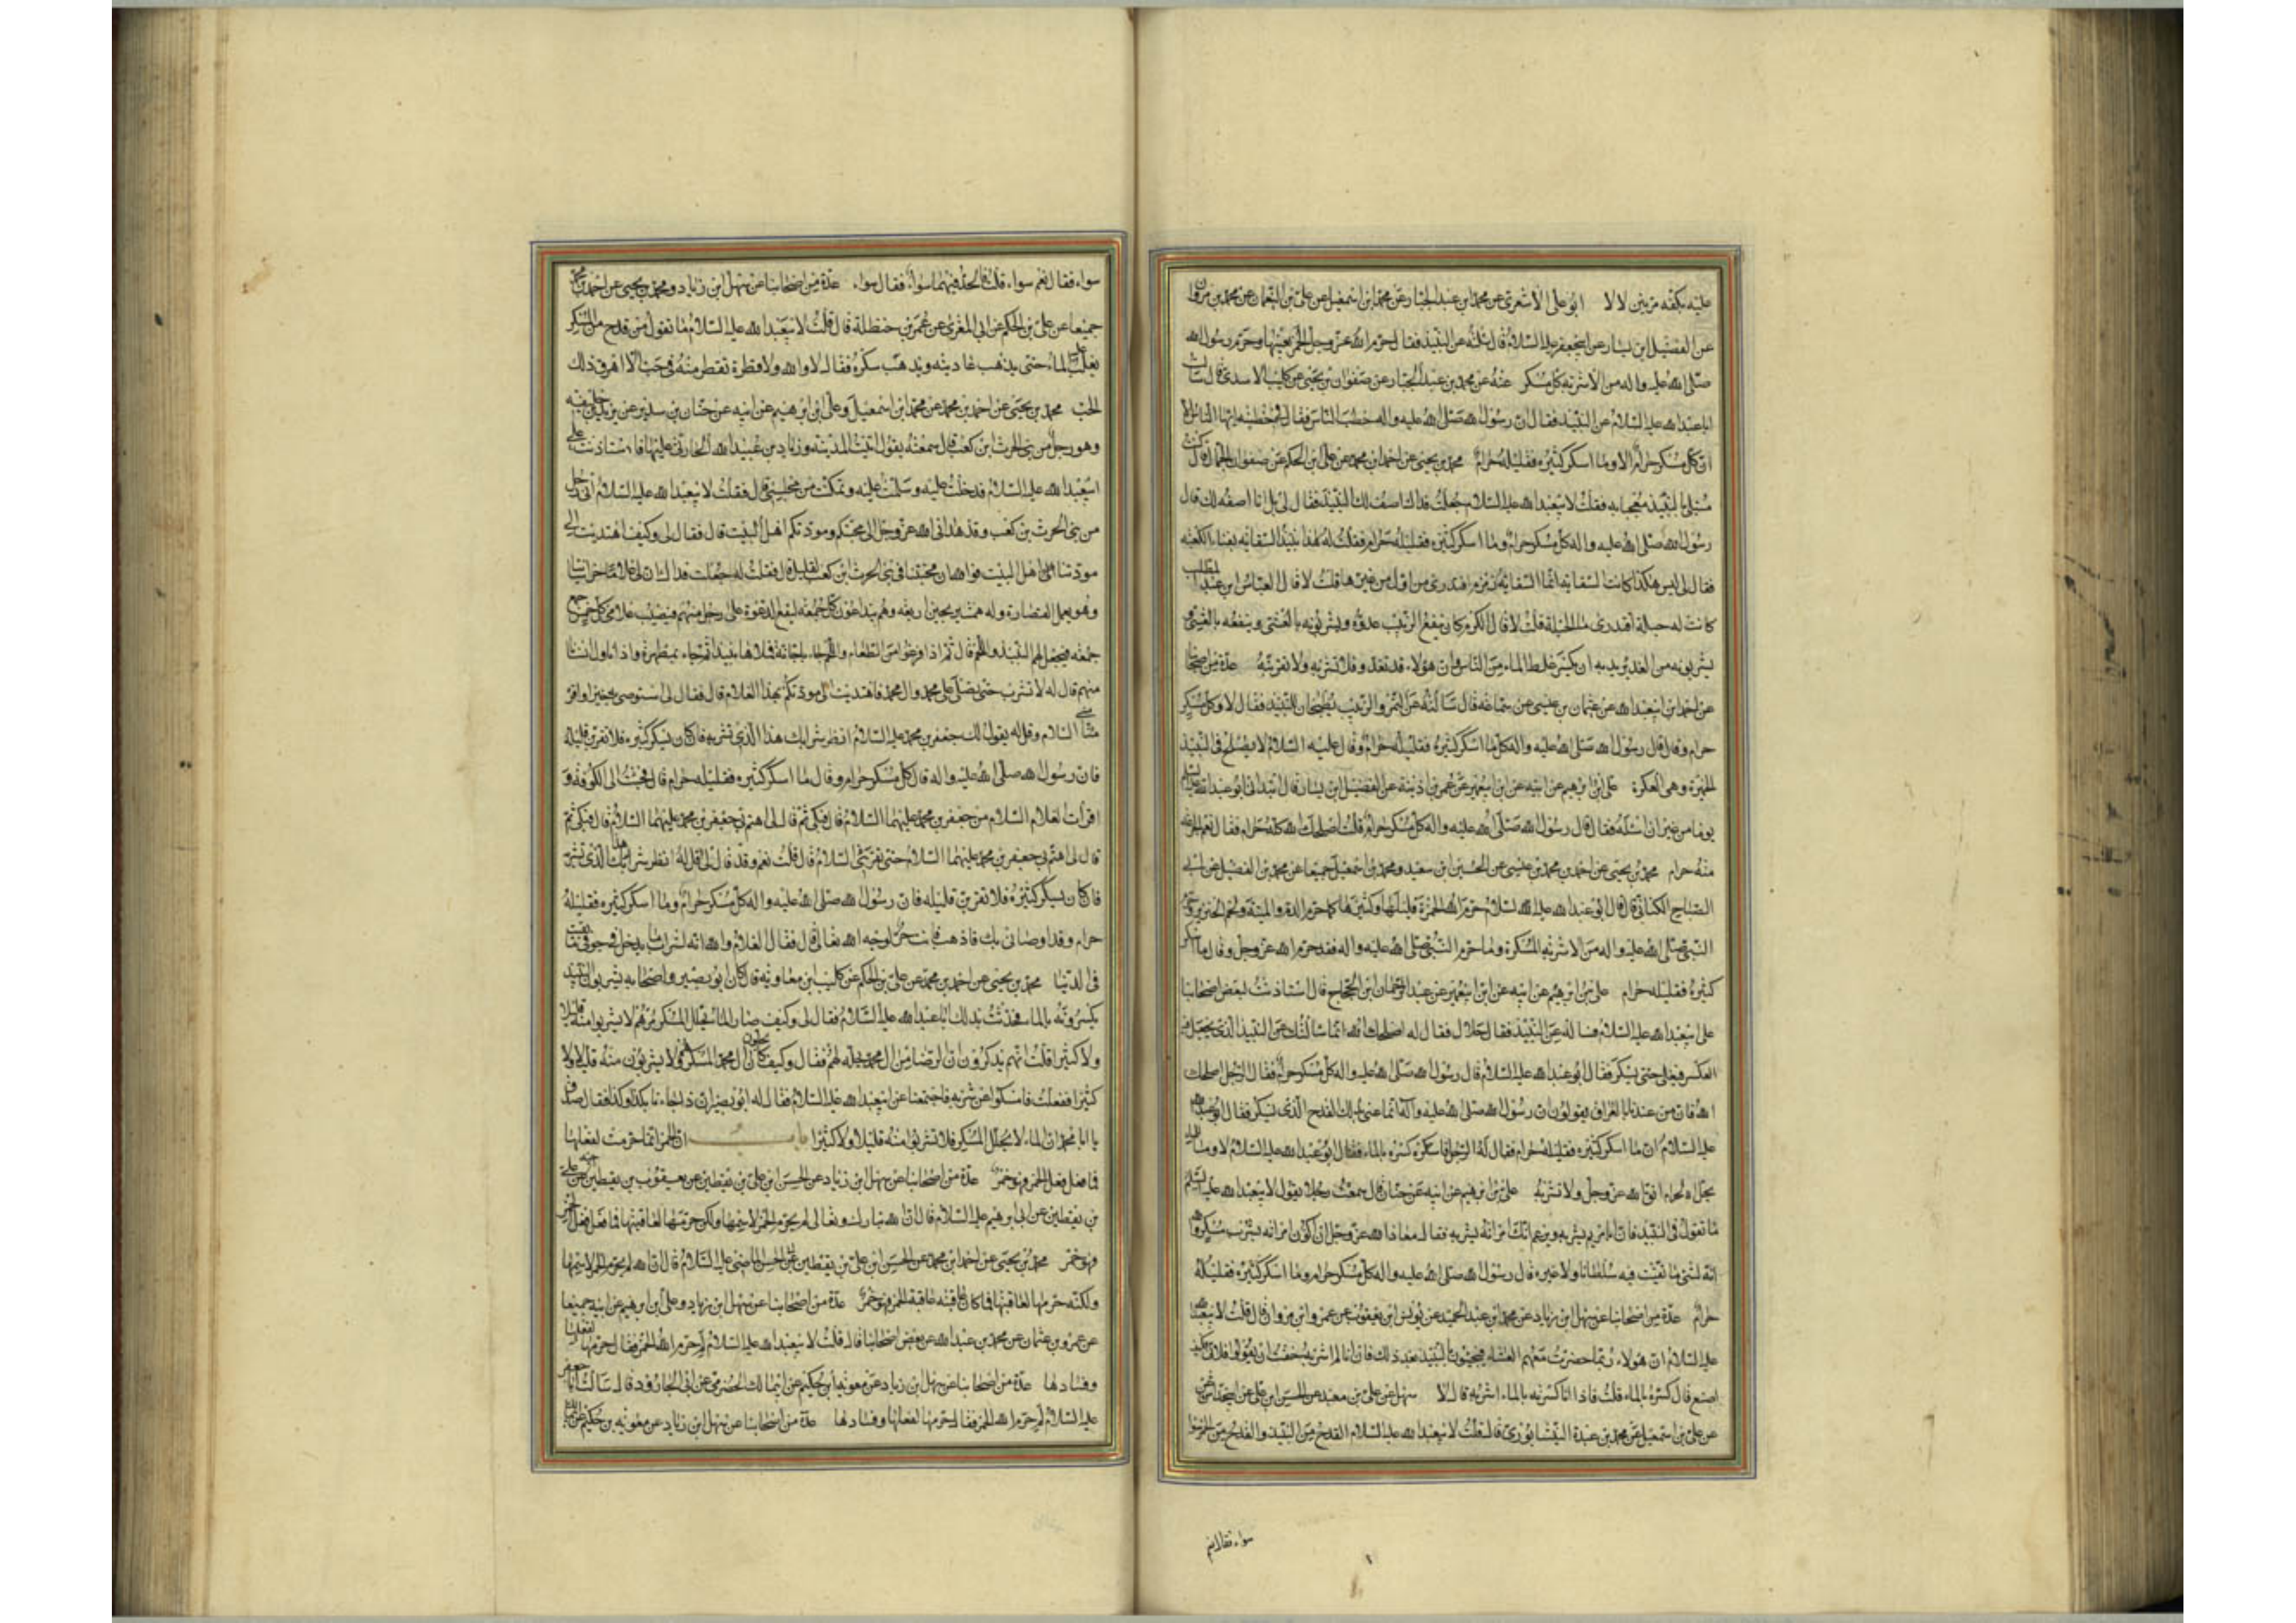 عليه بكفه مرتين لا لا ابو على الاشعرى عن محمد ابن عبد الجبار عن محمد ابن اسمعيل عن على بن النعمان عن محمد بن مروان
عن الفضيل ابن يسار عن ابيجعفر عليه السلام قال سئلته عن النبيذ فقال حرم الله عز وجل الخمر بعينها وحرم رسول الله
صلى الله عليه واله من الاشربة كل مسكر عنه عن محمد بن عبد الجبار عن صفوان بن يحيى عن كليب الاسدى قال سالت
اباعبدالله عليه السلام عن النبيذ فقال ان رسول الله صلى الله عليه واله خطب الناس فقال فى خطبته ايها الناس الا
ان كل مسكر حرام الا وما اسكر كثيره فقليله حرام محمد بن يحيى عن احمد ابن محمد عن على ابن الحكم عن صفوان الجمال قال كنت
مبتلى بالنبيذ معجبا به فقلت لابيعبدالله عليه السلام جعلت فداك اصف لك النبيذ فقال لى بل انا اصفه لك قال
رسول الله صلى الله عليه واله كل مسكر حرام وما اسكر كثيره فقليله حرام فقلت له هذا نبيذ السقاية بفناء الكعبة
فقال لى ليس هكذا كانت السقاية انما السقاية زمزم افتدرى من اول من غيرها قلت لا قال العباس ابن عبد المطلب
كانت له حبلة افتدرى ما الحبلة قلت لا قال الكرم كان ينقع الزبيب غدوة ويشربونه بالعشى وينقعه بالعشى و
يشربونه من الغد يريد به ان يكسر غلظ الماء من الناس وان هؤلاء قد تعدوا فلا تشربه ولا تقربنه عدة من اصحابنا
عن احمد ابن ابيعبدالله عن عثمان بن عيسى عن سماعة قال سالته عن التمر والزبيب يطبخان للنبيذ فقال لا وكل مسكر
حرام وقال قال رسول الله صلى الله عليه واله كل ما اسكر كثيره فقليله حرام وقال عليه السلام لا يصلح فى النبيذ
الخميرة وهى العكرة على ابن ابرهيم عن ابيه عن ابن ابيعمير عن عمر بن اذينة عن الفضيل ابن يسار قال ابتدانى ابوعبدالله عليه السلم
يوما من غير ان اسئله فقال قال رسول الله صلى الله عليه واله كل مسكر حرام قلت اصلحك الله كله حرام فقال نعم الجرعة
منه حرام محمد بن يحيى عن احمد بن محمد بن عيسى عن الحسين ابن سعيد ومحمد بن اسمعيل جميعا عن محمد بن الفضيل عن ابى
الصباح الكنانى قال قال ابوعبدالله عليه السلام حرم الله الخمرة قليلها وكثيرها كما حرم الدم والميتة ولحم الخنزير وحرم
النبى صلى الله عليه واله من الاشربة المسكرة وما حرم النبى صلى الله عليه واله فقد حرم الله عز وجل وقال ما اسكر
كثيره فقليله حرام على بن ابرهيم عن ابيه عن ابن ابيعمير عن عبد الرحمان ابن الحجاج قال استاذنت لبعض اصحابنا
على ابيعبدالله عليه السلام فسأله عن النبيذ فقال حلال فقال له اصلحك الله انما سالتك عن النبيذ الذى يجعل فيه
العكر فيغلى حتى يسكر فقال ابوعبدالله عليه السلام قال رسول الله صلى الله عليه واله كل مسكر حرام فقال الرجل اصلحك
الله فان من عندنا بالعراق يقولون ان رسول الله صلى الله عليه وآله انما عنى بذلك القدح الذى يسكر فقال ابوعبدالله
عليه السلام ان ما اسكر كثيره فقليله حرام فقال له الرجل فاسكره كسره بالماء فقال ابوعبدالله عليه السلام لا وما للماء
يحل الحرام اتق الله عز وجل ولا تشربه على بن ابرهيم عن ابيه عن حنان قال سمعت رجلا يقول لابيعبدالله عليه السلم
ما تقول فى النبيذ فان ابا مريم يشربه ويزعم انك امرته بشربه فقال معاذ الله عز وجل ان اكون امرته بشرب مسكر والله
انه لشئ ما اتقيت فيه سلطانا ولا غيره قال رسول الله صلى الله عليه واله كل مسكر حرام وما اسكر كثيره فقليله
حرام عدة من اصحابنا عن سهل ابن زياد عن محمد ابن عبد الحميد عن يونس ابن يعقوب عن عمرو ابن مروان قال قلت لابيعبدالله
عليه السلام ان هؤلاء ربما حضرت معهم العشاء فيجيئون بالنبيذ بعد ذلك فان انا لم اشربه خفت ان يقولوا فلانى فكيف
اصنع قال كسره بالماء قلت فاذا انا كسرته بالماء اشربه قال لا سهل عن على بن معبد عن الحسن ابن على عن
عن على بن اسمعيل عن محمد بن عبدة النيشابورى قال قلت لابيعبدالله عليه السلام القدح من النبيذ والقدح من الخمر سوا
سواء فقال نعم
سواء فقال نعم سواء قلت فالحد فيهما سواء فقال سواء عدة من اصحابنا عن سهل ابن زياد ومحمد بن يحيى عن احمد بن محمد
جميعا عن على بن الحكم عن ابى المغرى عن عمر بن حنظلة قال قلت لابيعبدالله عليه السلام ما تقول فى قدح من المسكر
يغلب عليه الماء حتى يذهب عاديته ويذهب سكره فقال لا والله ولا قطرة تقطر منه فى حب الا اهرق ذلك
الحب محمد بن يحيى عن احمد بن محمد عن محمد ابن اسمعيل وعلى ابن ابرهيم عن ابيه عن حنان بن سدير عن يزيد بن خليفة
وهو رجل من بنى الحرث ابن كعب قال سمعته يقول اتيت المدينة وزياد بن عبيدالله الحارثى عليها فاستاذنت على
ابيعبدالله عليه السلام فدخلت عليه وسلمت عليه وتمكنت من مجلسى قال فقلت لابيعبدالله عليه السلام انى رجل
من بنى الحرث بن كعب وقد هدانى الله عز وجل الى محبتكم ومودتكم اهل البيت قال فقال لى وكيف اهتديت الى
مودتنا اهل البيت فوالله ان محبتنا فى بنى الحرث ابن كعب لقليل قال فقلت له جعلت فداك ان لى غلاما خراسانيا
وهو يعمل القصارة وله همشهريجين اربعة وهم يتداعون كل جمعة ليقع الدعوة على رجل منهم فيصيب غلامى كل خمس جمع
جمعة فيجعل لهم النبيذ واللحم قال ثم اذا فرغوا من الطعام واللحم جاء باجانة فملاها نبيذا ثم جاء بمطهرة واذا ناول انسانا
منهم قال له لا تشرب حتى تصلى على محمد وال محمد فاهتديت الى مودتكم بهذا الغلام قال فقال لى استوصى به خيرا واقرئه
منى السلام وقل له يقول لك جعفر بن محمد عليه السلام انظر شرابك هذا الذى تشربه فان كان يسكر كثيره فلا تقربن قليله
فان رسول الله صلى الله عليه واله قال كل مسكر حرام وقال ما اسكر كثيره فقليله حرام قال فجئت الى الكوفة و
اقرأت الغلام السلام من جعفر بن محمد عليهما السلام قال فبكى ثم قال لى اهتم بى جعفر بن محمد عليهما السلام قال فبكى ثم
قال لى اهتم بى جعفر بن محمد عليهما السلام حتى يقرئنى السلام قال قلت نعم وقد قال لى قل له انظر شرابك هذا الذى تشربه
فان كان يسكر كثيره فلا تقربن قليله فان رسول الله صلى الله عليه واله كل مسكر حرام وما اسكر كثيره فقليله
حرام وقد اوصانى بك فاذهب فانت حر لوجه الله تعالى قال فقال الغلام والله انه لشراب ما يدخل جوفى ما بقيت
فى الدنيا محمد بن يحيى عن احمد بن محمد عن على بن الحكم عن كليب ابن معاوية قال كان ابوبصير واصحابه يشربون النبيذ
يكسرونه بالماء فحدثت بذلك اباعبدالله عليه السلام فقال لى وكيف صار الماء يحلل المسكر مرهم لا يشربوا منه قليلا
ولا كثيرا قلت انهم يذكرون ان الرضا من ال محمد يحله لهم فقال وكيف كان يحلون ال محمد المسكر وهم لا يشربون منه قليلا ولا
كثيرا ففعلت فامسكوا عن شربه فاجتمعنا عند ابيعبدالله عليه السلام فقال له ابوبصير ان ذا جاءنا بكذا وكذا فقال صدق
يا ابا محمد ان الماء لا يحلل المسكر فلا تشربوا منه قليلا ولا كثيرا باب ان الخمر انما حرمت لفعلها
فما فعل فعل الخمر فهو خمر عدة من اصحابنا عن سهل ابن زياد عن الحسن ابن على بن يقطين عن يعقوب بن يقطين عن اخيه على
بن يقطين عن ابى ابرهيم عليه السلام قال ان الله تبارك وتعالى لم يحرم الخمر لاسمها ولكن حرمها لعاقبتها فما فعل فعل الخمر
فهو خمر محمد بن يحيى عن احمد ابن محمد عن الحسن ابن على بن يقطين عن ابى الحسن الماضى عليه السلام قال ان الله لم يحرم الخمر لاسمها
ولكنه حرمها لعاقبتها فما كان عاقبته عاقبة الخمر فهو خمر عدة من اصحابنا عن سهل ابن زياد وعلى ابن ابرهيم عن ابيه جميعا
عن عمرو بن عثمان عن محمد بن عبدالله عن بعض اصحابنا قال قلت لابيعبدالله عليه السلام لم حرم الله الخمر فقال حرمها لفعلها
وفسادها عدة من اصحابنا عن سهل ابن زياد عن معوية ابن حكيم عن ابيمالك الحضرمى عن ابى الجارود قال سالت اباجعفر
عليه السلام لم حرم الله الخمر فقال حرمها لفعلها وفسادها عدة من اصحابنا عن سهل ابن زياد عن معوية بن حكيم عن